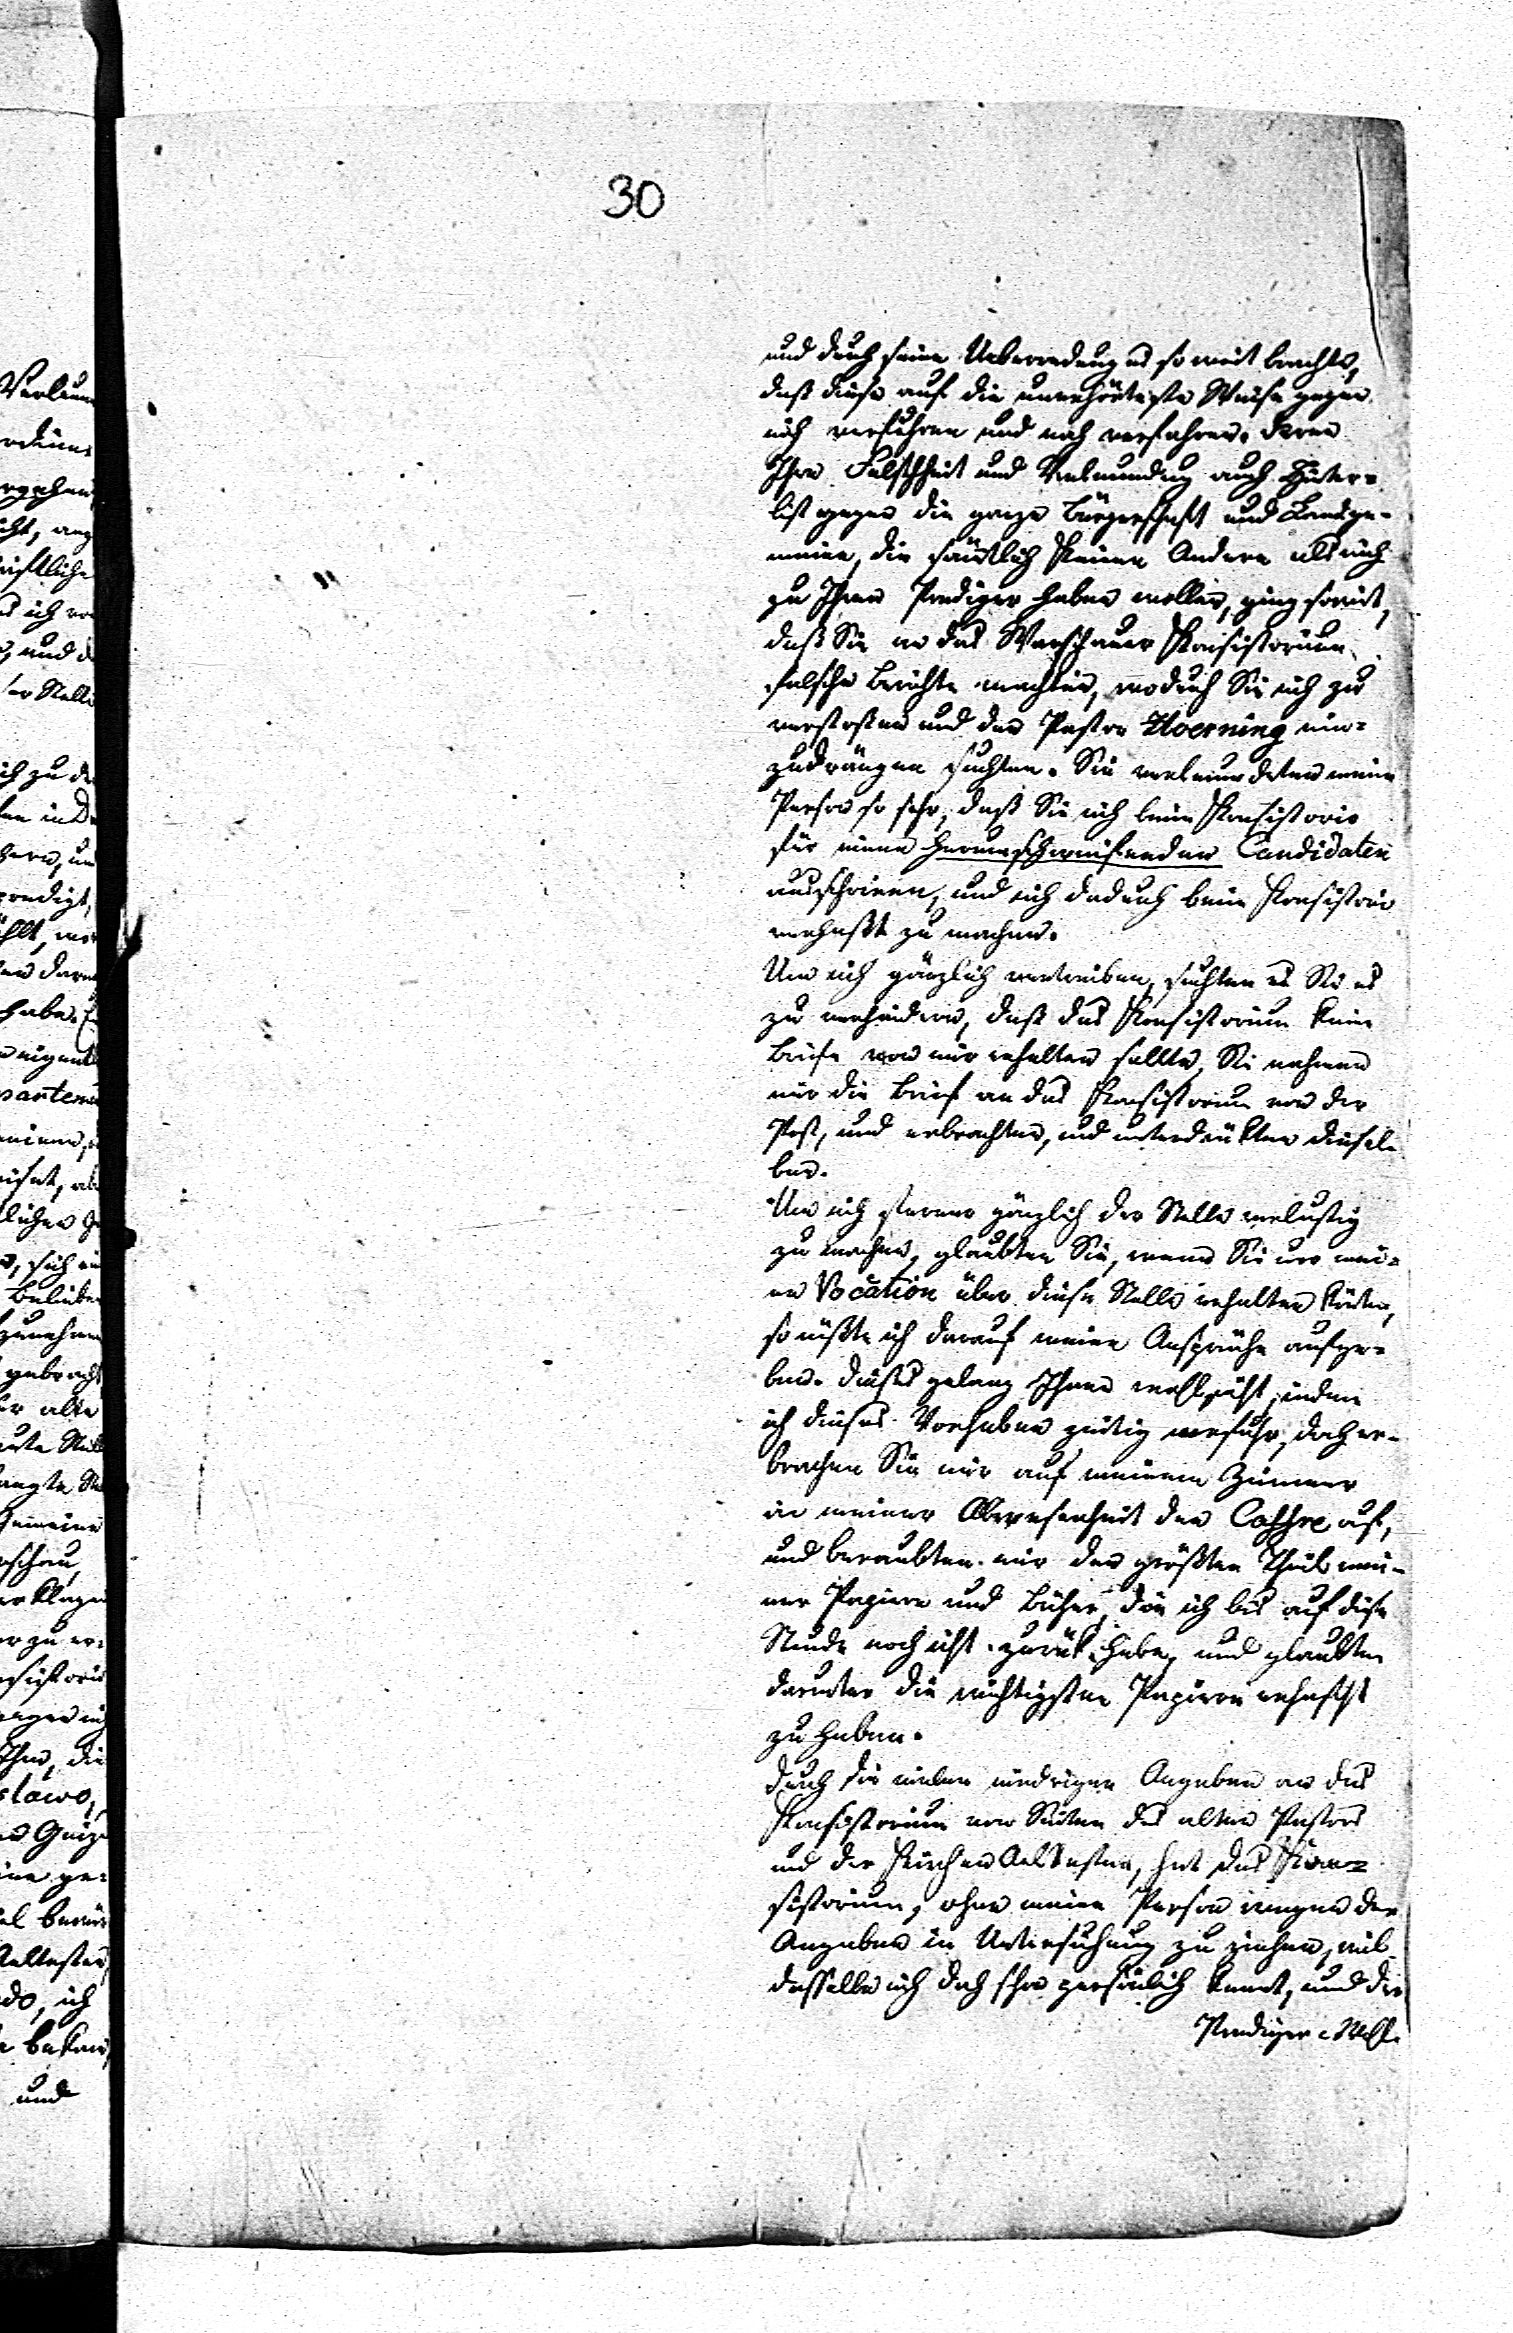 30
und durch seine Ueberredung es so weit brachte,
daß diese auf die unerhörteste Weise gegen
mich verfuhren und noch verfahren. Deren
Ihre Falschheit und Verleumdung auch Hinter-
list gegen die ganze Bürgerschaft und Landge-
meine, die sämtlich keinen Andern als mich
zu Ihren Prediger haben wollen, ging soweit,
daß Sie an das Warschauer Konsistorium
falsche Berichte machten, wodurch Sie mich zu
verstoßen und den Pastor Hoerning ein-
zudrängen suchten. Sie verleumdeten meine
Person so sehr, daß Sie mich beim Konsistorio
für einen herumschweifenden Candidaten
ausschrieen, und mich dadurch beim Konsistorio
verhaßt zu machen.
Um mich gänzlich vertreiben, suchten es Sie es
zu verhindern, daß das Konsistorium keine
Briefe von mir erhalten sollte, Sie nahmen
mir die Brief an das Konsistorium von der
Post, und erbrachten, und unterdrükten diesel-
ben.
Um mich ferner gänzlich der Stelle verlustig
zu machen, glaubten Sie, wenn Sie nur mei-
ne Vocation über diese Stelle erhalten könten,
so müßte ich darauf meine Ansprüche aufge-
ben. Dieses gelang Ihnen wohl nicht, indem
ich dieses Vorhaben zeitig erfuhr, doch er-
brachen Sie mir auf meinem Zimmer
in meiner Abwesenheit den Coffre auf,
und beraubten mir den größten Theil mei-
ner Papiere und Bücher, die ich bis auf diese
Stunde noch nicht zurük habe, und glaubten
darunter die wichtigsten Papiere erhascht
zu haben.
Durch die vielen niedrigen Angaben an das
Konsistorium von Seiten des alten Pastors
und der Kirchen Aeltesten, hat das Kon-
sistorium, ohne meine Person wegen der
Angaben in Untersuchung zu ziehen, weil
dasselbe mich doch schon persönlich kennt, und die
Prediger